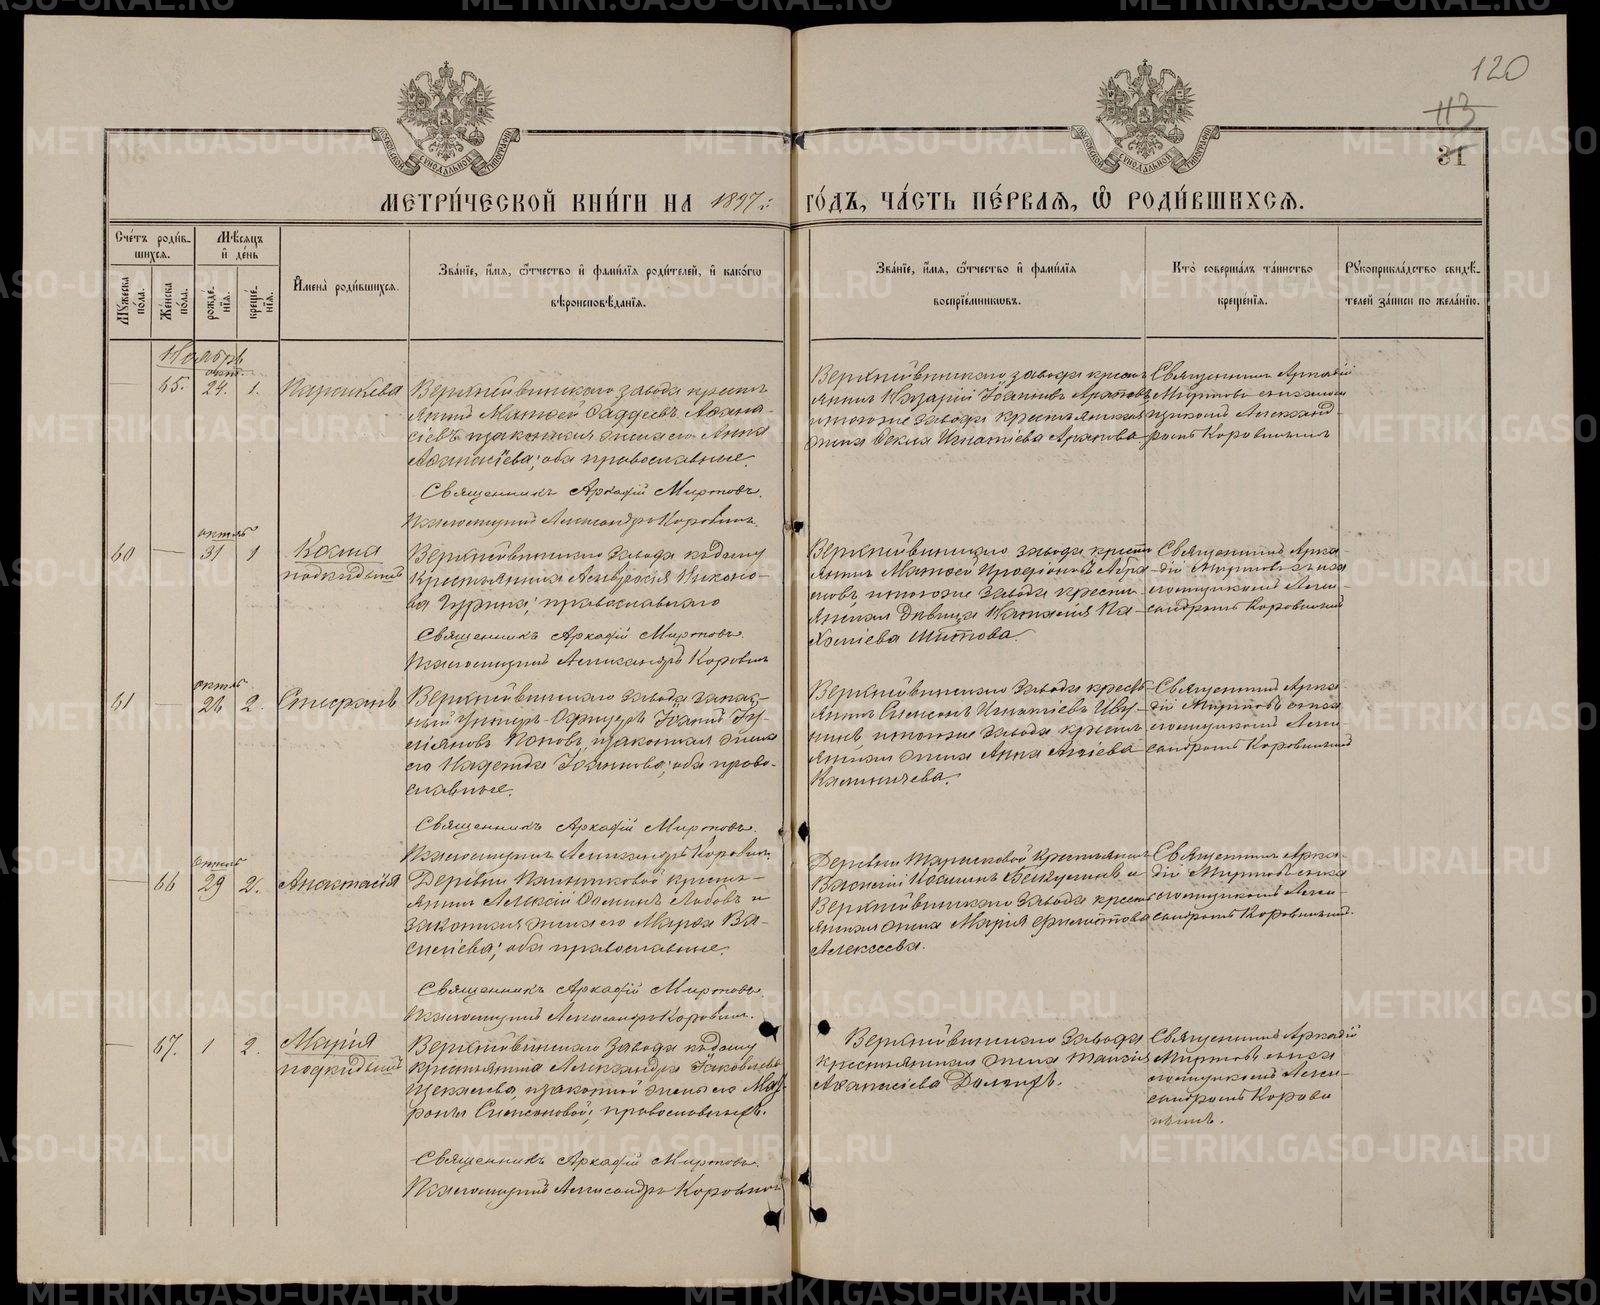 120
113
31
МОСКОВСКОЙ СѴНОДАЛЬНОЙ ТИПОГРАФІИ
МОСКОВСКОЙ СѴНОДАЛЬНОЙ ТИПОГРАФІИ
МЕТРИ́ЧЕСКОЙ КНИ́ГИ НА 1897й ГО́ДЪ, ЧА́СТЬ ПЕ́РВАѦ, Ѡ РОДИ́ВШИХСѦ.
Сче́тъ роди́в-
шихсѧ.
Мꙋ́жеска по́ла.
Же́нска по́ла.
Мѣ́сѧцъ
и҆ де́нь
рожде́-
нїѧ.
креще́-
нїѧ.
И҆мена̀ роди́вшихсѧ.
Зва́нїе, и҆́мѧ, ѻ҆́тчество и҆ фамѝлїѧ роди́телей, и҆ како́гѡ
вѣроисповѣ́данїѧ.
Зва́нїе, и҆́мѧ, ѻ҆́тчество и҆ фамѝлїѧ
воспрїе́мникѡвъ.
Кто̀ соверша́лъ та́инство
креще́нїѧ.
Рꙋкоприкла́дство свидѣ́-
телей за́писи по жела́нїю.
Ноябрь
окт.
65. 24. 1. Параскева
Верхнейвинскаго завода кресть-
янинъ Матѳей Ѳаддеевъ Аѳана-
сіевъ и законная жена его Анна
Аѳанасіева; оба православные.
Священникъ Аркадій Миртовъ.
Псаломщикъ Александръ Коровинъ.
Верхнейвинскаго завода кресть-
янинъ Назарій Іоанновъ Араповъ
и того же завода крестьянская
жена Ѳекла Игнатіева Арапова
Священникъ Аркадій
Миртовъ съ псалом-
щикомъ Александ-
ромъ Коровинымъ
октяб
60 31 1 Косма
подкидышъ
Верхнейвинскаго завода къ дому
крестьянина
православнаго
Священникъ Аркадій Миртовъ.
Псаломщикъ Александръ Коровинъ
Верхнейвинскаго завода кресть-
янинъ Матѳей
и того же завода кресть-
янская дѣвица Наталія Па-
Шитова.
Священникъ Арка-
дій Миртовъ съ пса-
ломщикомъ Алек-
сандромъ Коровинымъ
октяб
61 26 2. Стефанъ
Верхнейвинскаго завода запас-
ный Унтеръ-Офицеръ Іоаннъ Іу-
ліановъ Поповъ и законная жена
его Надежда Іоаннова; оба право-
славные.
Священникъ Аркадій Миртовъ.
Псаломщикъ Александръ Коровинъ.
Верхнейвинскаго завода кресть-
янинъ Симеонъ Игнатіевъ
и того же завода кресть-
янская жена Анна
Калиничева.
Священникъ Арка-
дій Миртовъ съ пса-
ломщикомъ Алек-
сандромъ Коровинымъ
октяб
66 29 2. Анастасія
Деревни кресть-
янинъ Алексій и
законная жена его Марѳа Ва-
силіева; оба православные.
Священникъ Аркадій Миртовъ.
Псаломщикъ Александръ Коровинъ.
Деревни Тарасковой крестьянинъ
и
Верхнейвинскаго завода кресть-
янская жена Марія Филиппова
Алексеева.
Священникъ Арка-
дій Миртовъ съ пса-
ломщикомъ Алек-
сандромъ Коровинымъ.
67. 1 2. Марія
подкидышъ
Верхнейвинскаго завода къ дому
крестьянина Александра Іаковлева
и законной жены его Мат-
роны Симеоновой; православныхъ.
Священникъ Аркадій Миртовъ.
Псаломщикъ Александръ Коровинъ
Верхнейвинскаго завода
крестьянская жена Таисія
Аѳанасіева
Священникъ Аркадій
Миртовъ съ пса-
ломщикомъ Алек-
сандромъ Корови-
нымъ.
METRIKI.GASO-URAL.RU